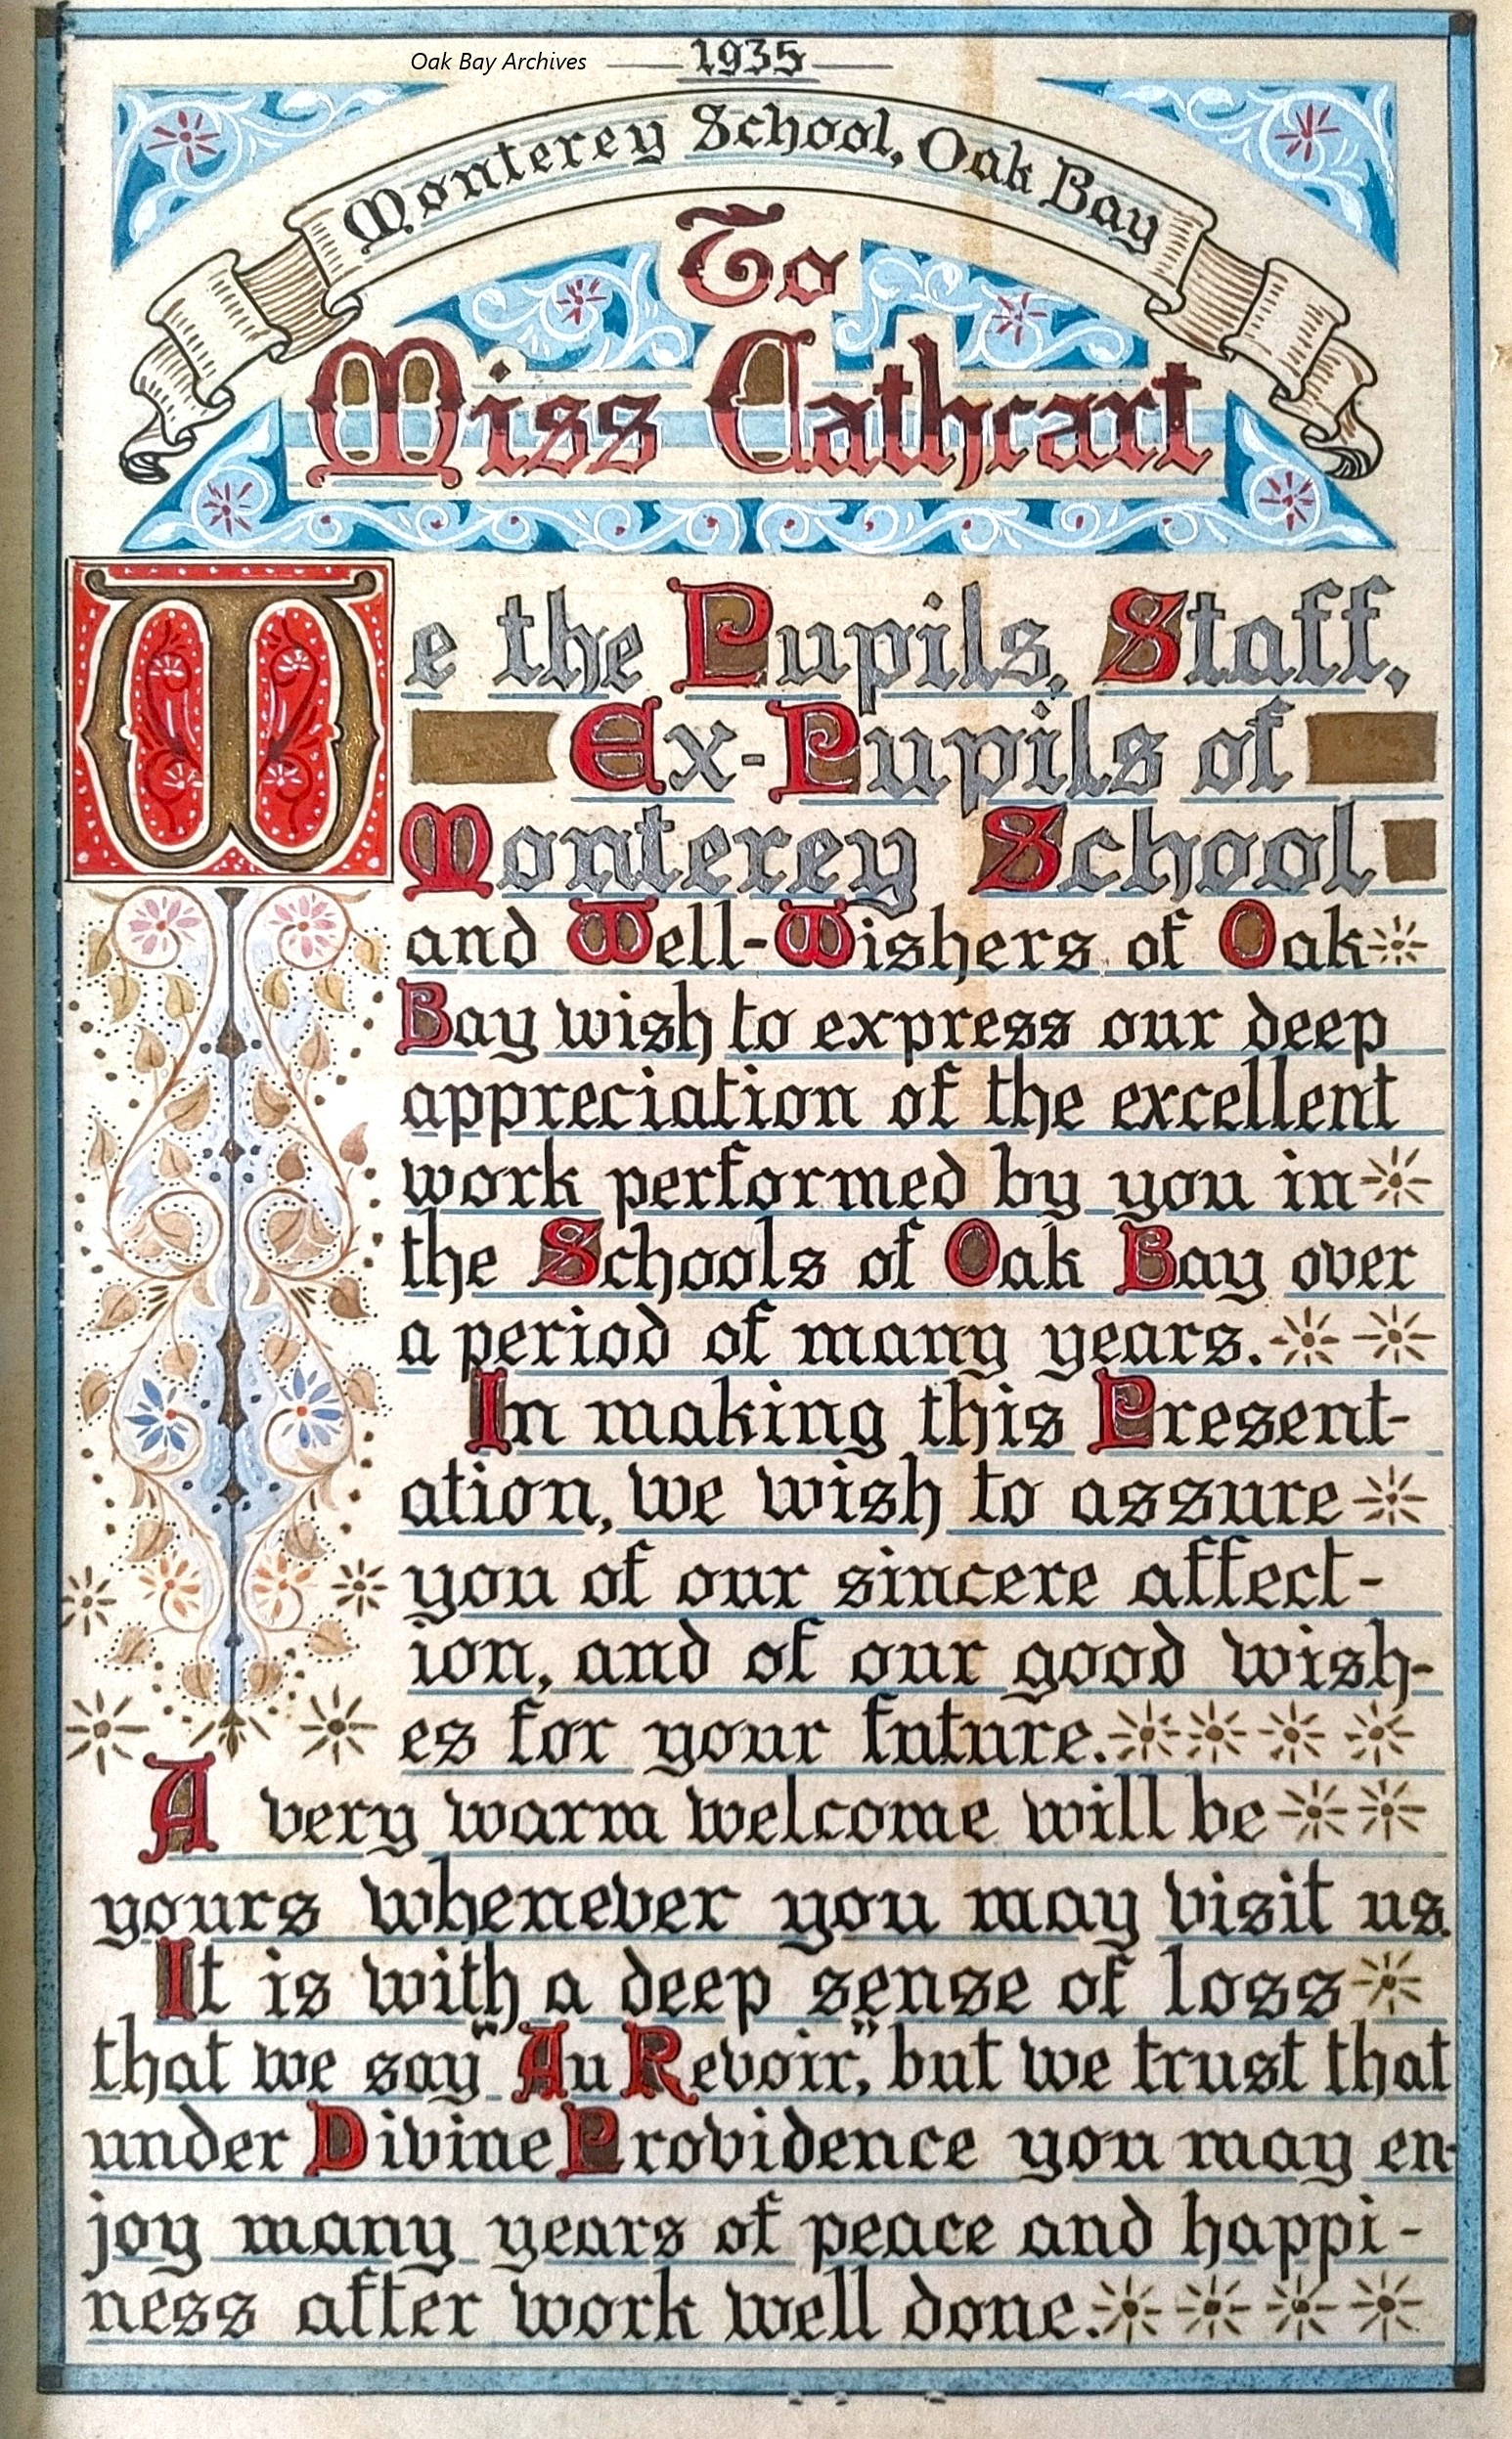 Oak Bay Archives
1935
Monterey School, Oak Bay
To
Miss Cathcart
We the Pupils, Staff,
Ex-Pupils of
Monterey School
and Well-Wishers of Oak
Bay wish to express our deep
appreciation of the excellent
work performed by you in
the Schools of Oak Bay over
a period of many years.
In making this Present-
ation, we wish to assure
you of our sincere affect-
ion, and of our good wish-
es for your future.
A very warm welcome will be
yours whenever you may visit us.
It is with a deep sense of loss
that we say "Au Revoir", but we trust that
under Divine Providence you may en-
joy many years of peace and happi-
ness after work well done.